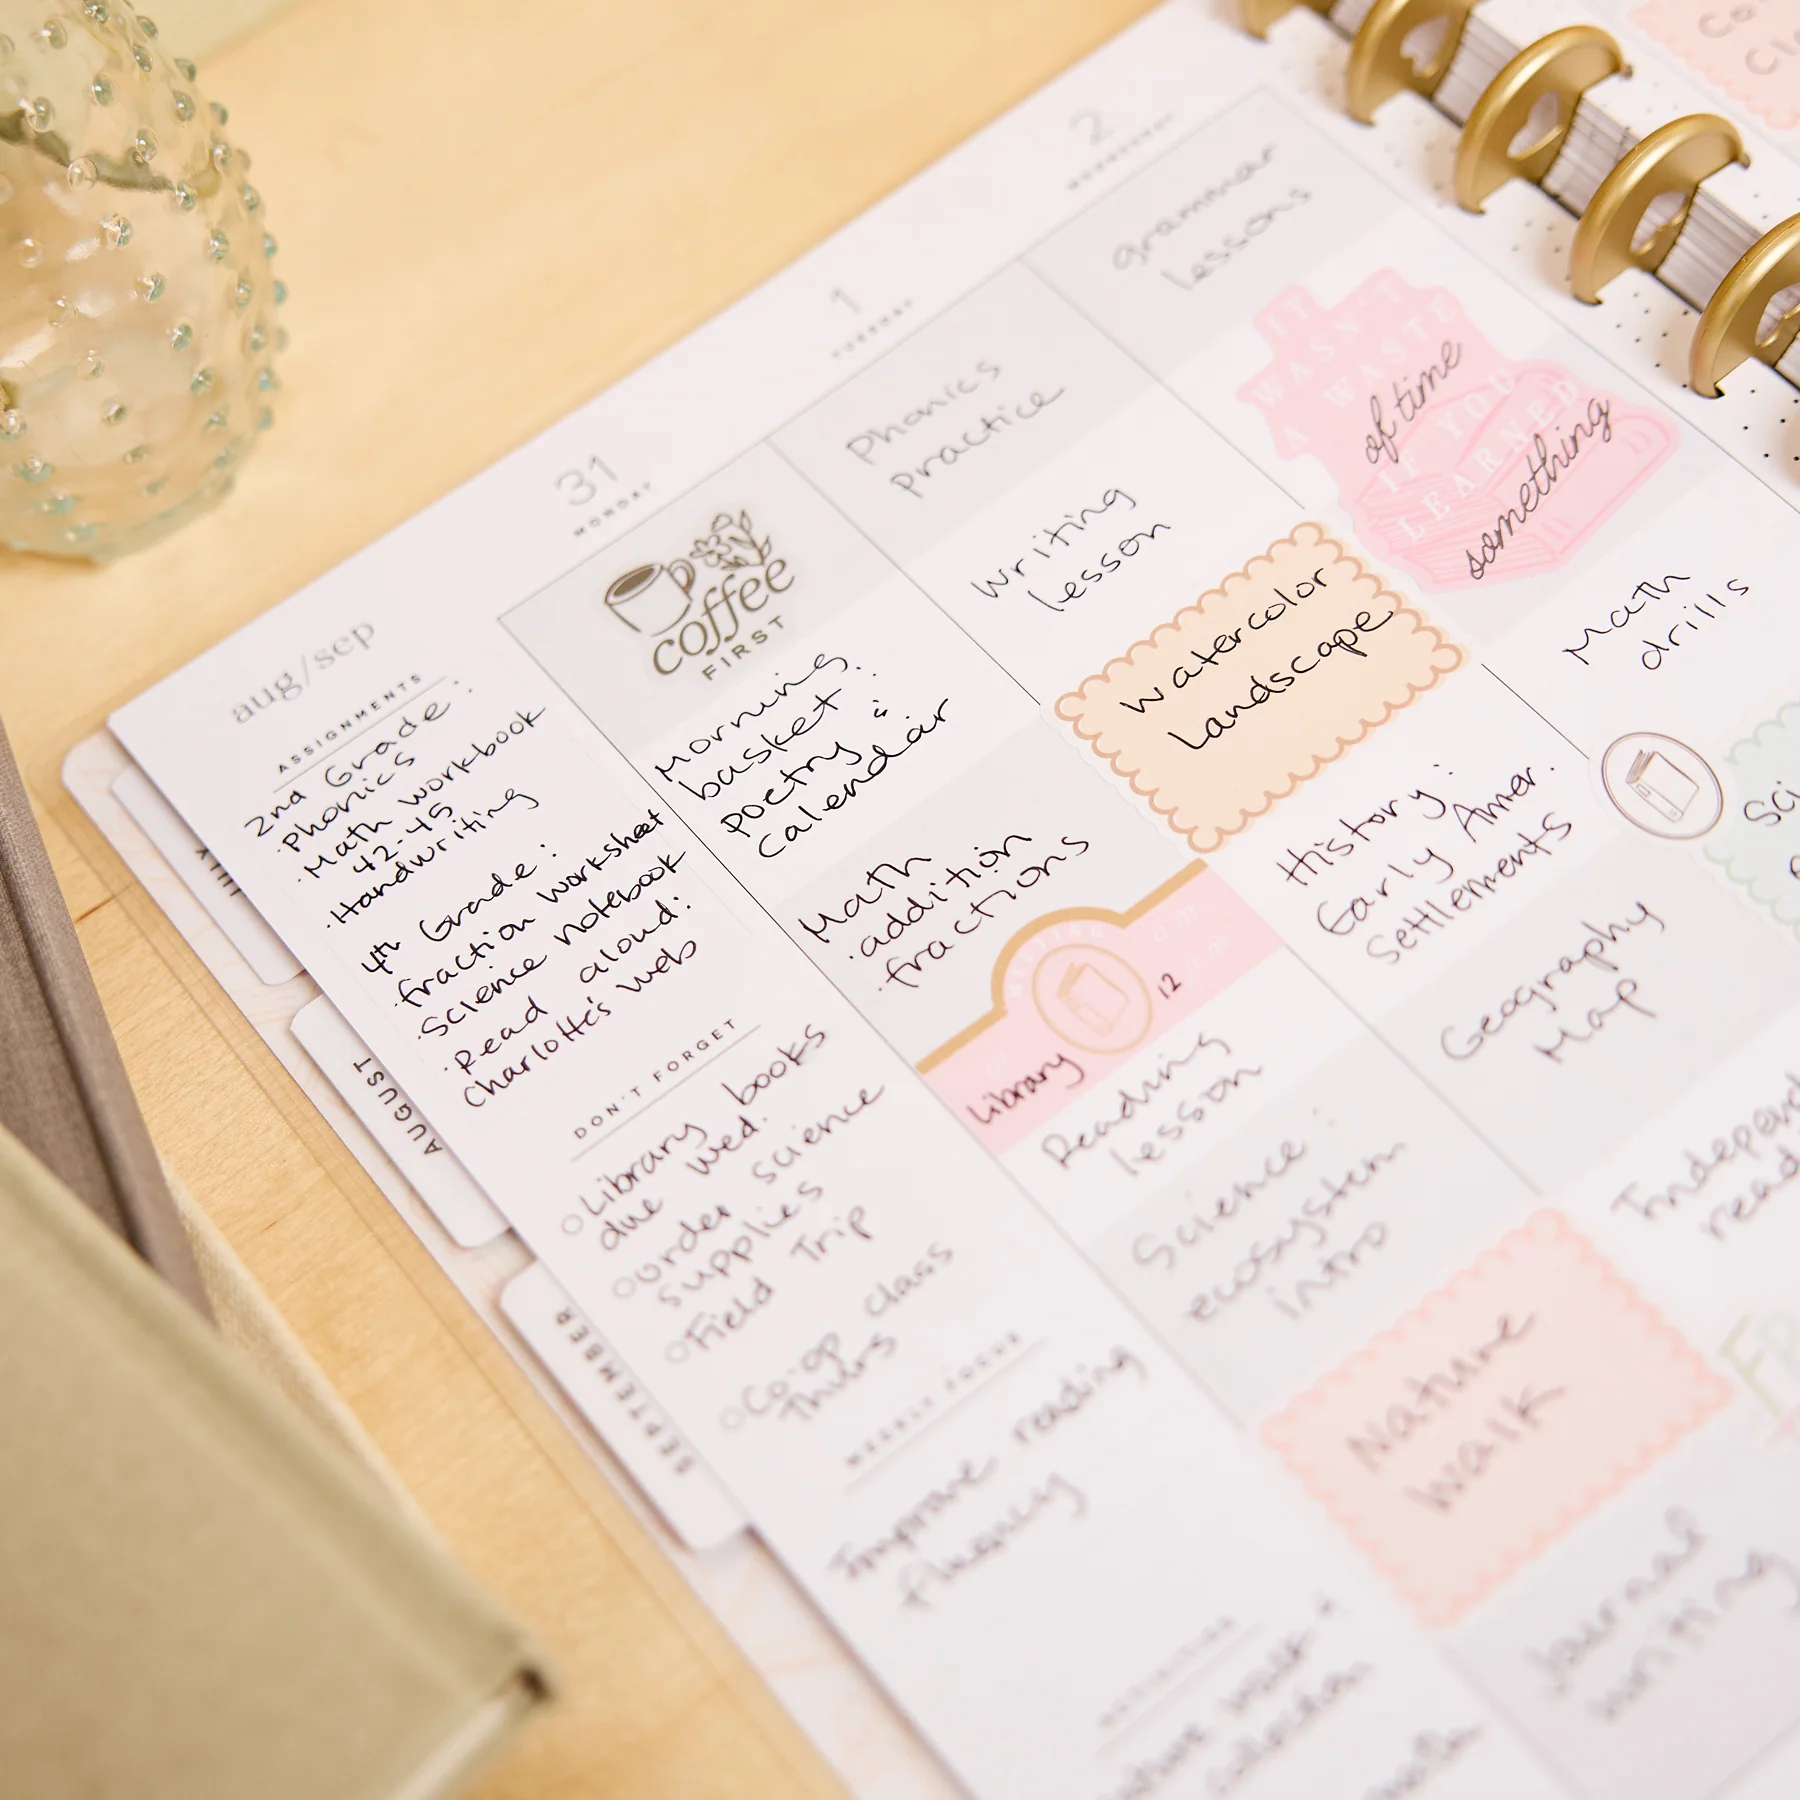 aug/sep
ASSIGNMENTS
2nd Grade:
·Phonics
·Math workbook
42-45
·Handwriting
4th Grade:
·fraction worksheet
·Science notebook
·Read aloud:
Charlotte's Web
DON'T FORGET
Library books
due Wed.
Order science
supplies
Field Trip
Co-op class
Thurs
WEEKLY FOCUS
Improve reading
fluency
31
MONDAY
coffee
FIRST
Morning
basket:
Poetry &
Calendar
Math
·addition
·fractions
MEETING
12
Library
Reading
lesson
Science:
ecosystem
intro
Nature
Walk
Journal
writing
1
TUESDAY
Phonics
Practice
Writing
lesson
Watercolor
Landscape
History:
Early Amer.
Settlements
Geography
Map
2
WEDNESDAY
grammar
lessons
IT
WASN'T
A WASTE
of time
IF YOU
LEARNED
something
Math
drills
JULY
AUGUST
SEPTEMBER